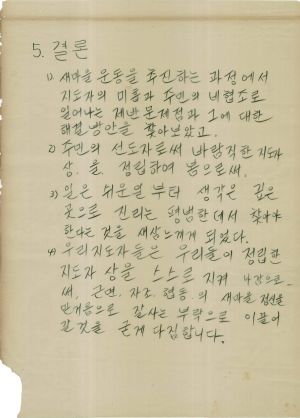 5. 결론
1) 새마을 운동을 추진하는 과정에서
지도자의 미흡과 주민의 비협조로
일어나는 제반문제점과 그에 대한
해결방안을 찾아보았고.
2) 주민의 선도자로써 바람직한 지도자
상. 을. 정립하여 봄으로써.
3) 일은 쉬운일 부터 생각은 깊은
곳으로 진리는 평범한데서 찾아야
한다는 것을 새삼느끼게 되었다.
4) 우리지도자들은 우리들이 정립한
지도자 상을 스스로 지켜 나감으로
써, 근면. 자조. 협동. 의 새마을 정신을
밑거름으로 잘사는 부락으로 이끌어
갈것을 굳게 다짐합니다.